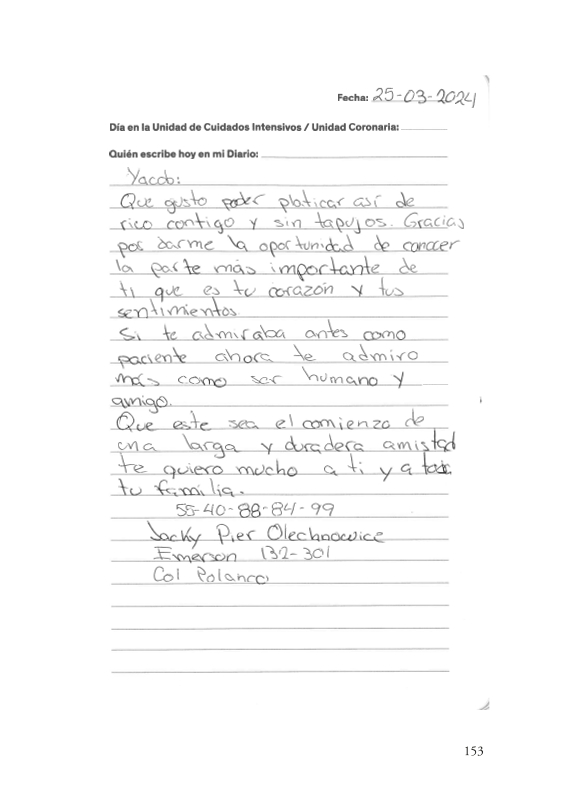 Fecha: 25-03-2024
Día en la Unidad de Cuidados Intensivos / Unidad Coronaria:
Quién escribe hoy en mi Diario:
Yacob:
Que gusto poder platicar así de
rico contigo y sin tapujos. Gracias
por darme la oportunidad de conocer
la parte más importante de
ti que es tu corazón y tus
sentimientos
Si te admiraba antes como
paciente ahora te admiro
más como ser humano y
amigo.
Que este sea el comienzo de
una larga y duradera amistad
te quiero mucho a ti y a toda
tu familia.
55-40-88-84-99
Jacky Pier Olechnowice
Emerson 132-301
Col Polanco
153